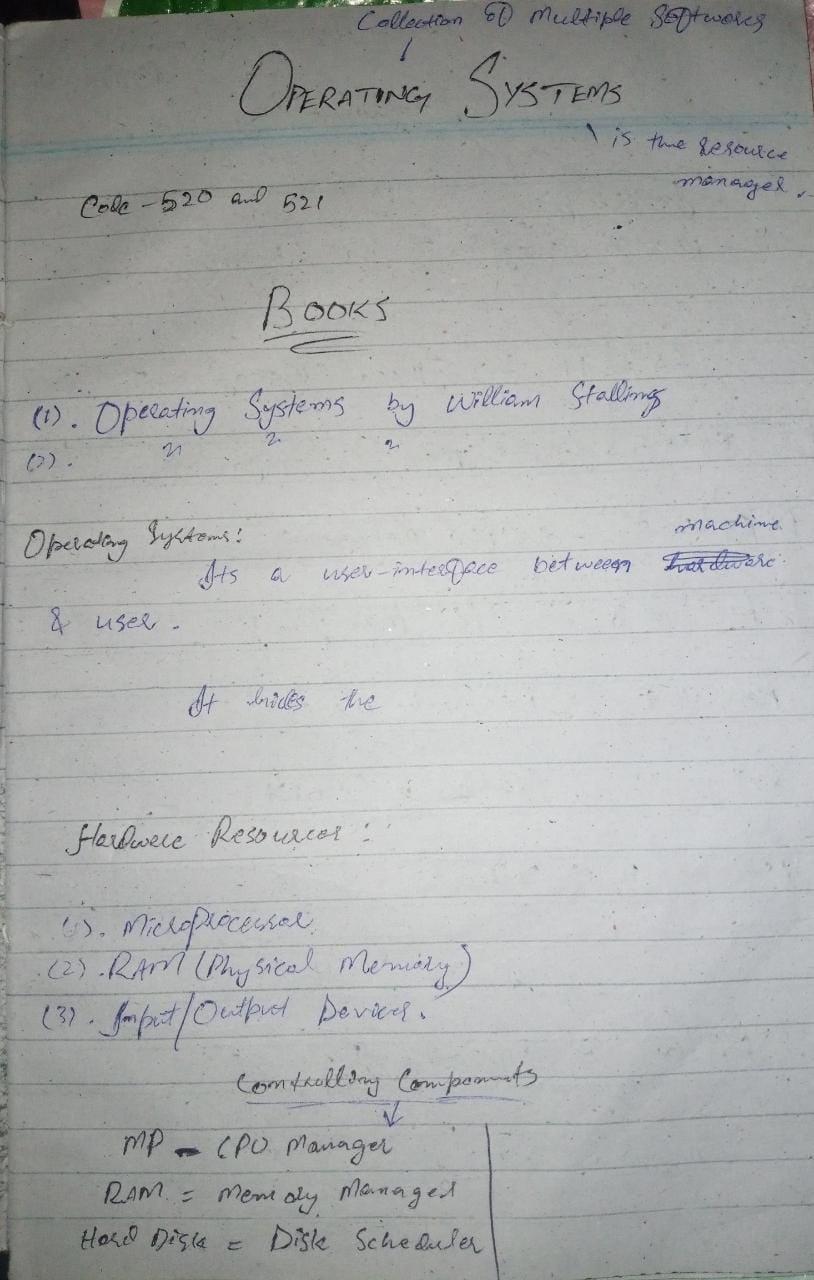 Collection of Multiple Softwares
OPERATING SYSTEMS
is the resource
manager.
Code - 520 and 521
BOOKS
(1). Operating Systems by William Stallings
(2). " " "
Operating Systems:
machine
Its a user-interface between hardware
& user.
It hides the
Hardware Resources:
(1). Microprocessor
(2). RAM (Physical Memory)
(3). Input/Output Devices.
Controlling Components
MP - CPU Manager
RAM = Memory Manager
Hard Disk = Disk Scheduler